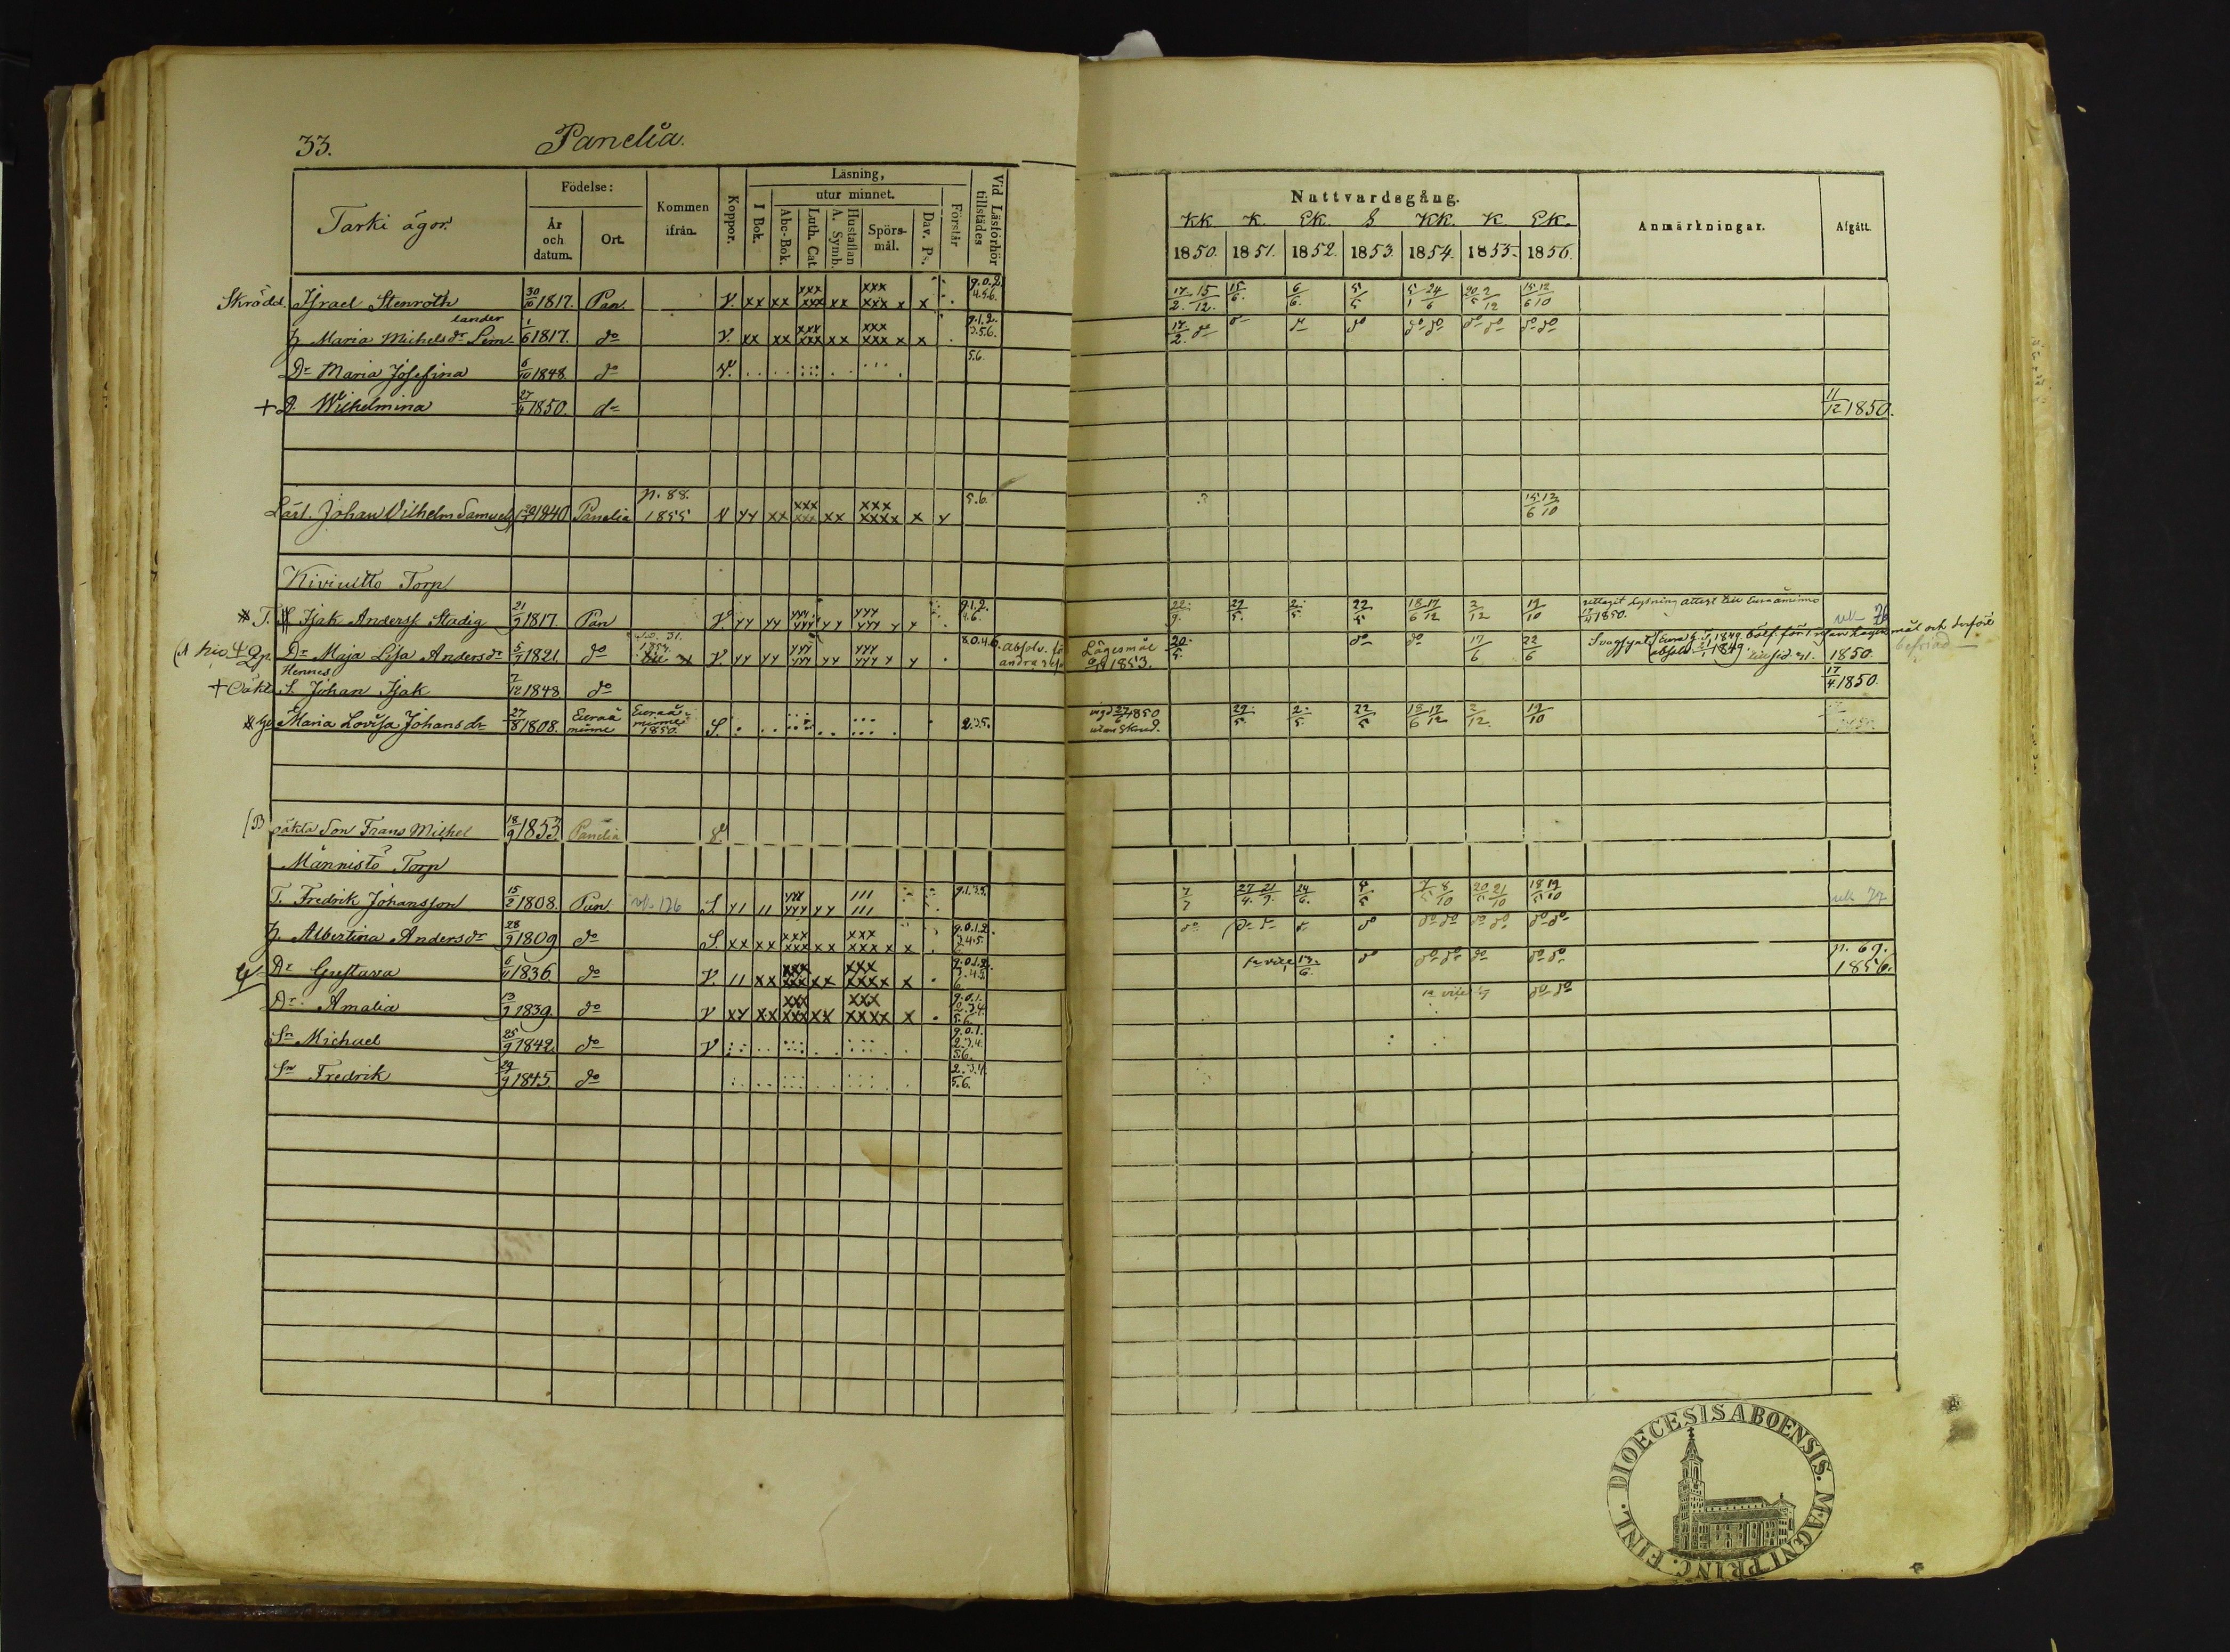 33. Panelia.
Tarki ägor.
Födelse:
År och datum.
Ort.
Kommen ifrån.
Koppor.
Läsning,
I Bok.
utur minnet.
Abc-Bok.
Luth. Cat.
Hustaflan A. Symb.
Spörs-mål.
Dav. Ps.
Förstår
Vid Läsförhör tillstädes
Nattvardsgång.
KK. K. EK. S KK. K. EK.
1850. 1851. 1852. 1853. 1854. 1855. 1856.
Anmärkningar.
Afgått.
Skrädd. Israel Stenroth 30/10 1817. Pan. V. xx xx xxx xxx xx xxx xxx x x 17/2 15/12 15/6 6/6 5/5 5/1 24/6 20/5 2/12 15/6 12/10
lander
H. Maria Michelsdr Lem- 1/6 1817. do V. xx xx xxx xxx xx xxx xxx x x 9.1.2. 3.5.6. 17/2 do do do do do do do do do do
Dr Maria Josefina 6/10 1848. do V. 5.6.
+ D. Wilhelmina 27/4 1850. do 11/12 1850.
Lärl. Johan Vilhelm Samuels 1840 Panelia p. 88. 1855 V yy xx xxx xxx xx xxx xxxx x y 5.6. 15/6 12/10
Kiviuitto Torp
T. Isak Anderss Stadig 21/9 1817 Pan V. yy yy yyy yyy yy yyy yyy y y 9.1.2. 4.6. 22/9 29/5 2/5 22/5 18/6 17/12 2/12 19/10 uttagit Lysning attest till Euraåminne 17/4 1850.
Dr Maja Lisa Andersdr 5/7 1821. do 1854. V. yy yy yyy yyy yy yyy yyy y y 8.0.4.6. absolv. Lägesmål 1853. 20/5 do do 17/6 22/6 Svagsynt 1849. 1849. 1850. befriad
Hennes
+ Oäkta S. Johan Isak 7/12 1848 do 17/4 1850.
Maria Lovisa Johansdr 27/8 1808. Euraåminne Euraåminne 1850. S. 2.3.5. vigd 27/6 1850 utan Skrud. 29/5 2/5 22/5 18/6 17/12 2/12 19/10
(B oäkta Son Frans Mikhel 18/9 1853 Panelia
Männistö Torp
T. Fredrik Johansson 15/2 1808. Pan 126 S. y1 11 yyy yyy yy 111 111 9.1.3.5. 7/7 27/4 21/9 24/6 5/5 7/5 8/10 20/5 21/10 18/5 19/10 77
H. Albertina Andersdr 28/9 1809 do S. xx xx xxx xxx xx xxx xxx x x 9.0.1.2. 3.4.5. 6. do do do do do do do do do do do
Dr Gustava 6/11 1836. do V. 11 xx xxx xxx xx xxx xxxx x 9.0.1.2. 3.4.5. 6. 1a vice 13/6 do do do do do do p. 69. 1856.
Dr Amalia 13/7 1839. do V xy xx xxx xxx xx xxx xxxx x 9.0.1. 2.3.4. 5.6. 1a vice do do
Sn Michael 25/9 1842. do V 9.0.1. 2.3.4. 5.6.
Sn Fredrik 29/9 1845 do 2.3.4. 5.6.
DIOECESIS ABOENSIS. MAGNI PRINC. FINL.